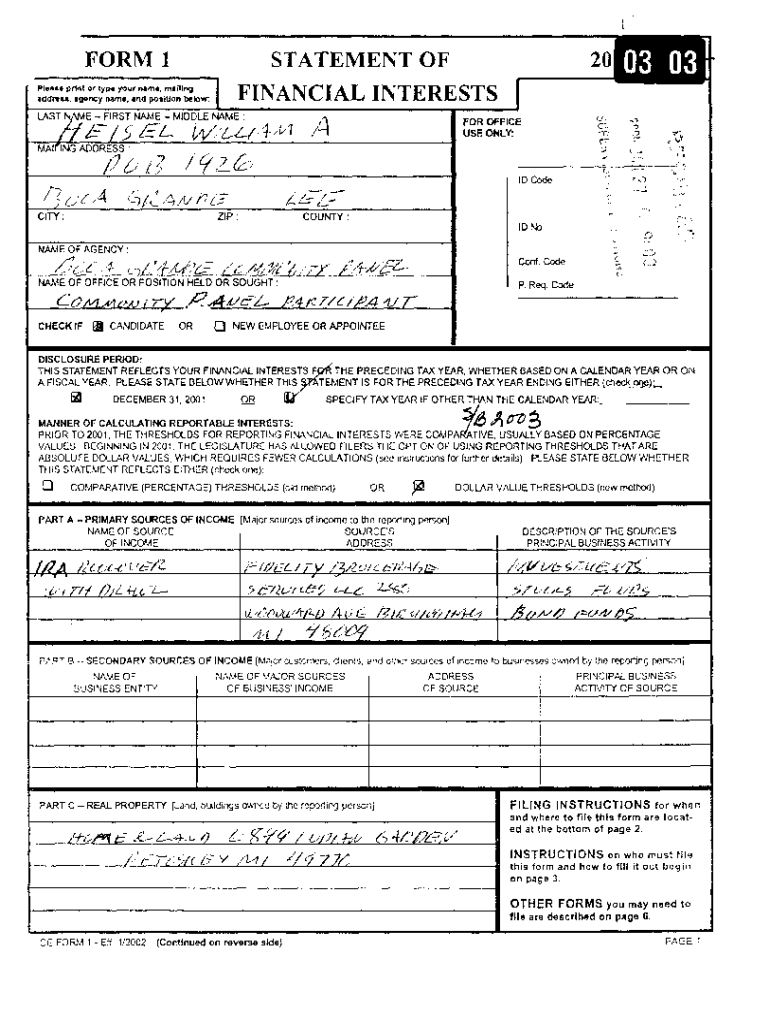 FORM 1 STATEMENT OF 20 03 03
Please print or type your name, mailing
address, agency name, and position below:
FINANCIAL INTERESTS
LAST NAME – FIRST NAME – MIDDLE NAME :
HEISEL WILLIAM A
FOR OFFICE
USE ONLY:
MAILING ADDRESS :
POB 1926
ID Code
BOCA GRANDE LEE
CITY : ZIP : COUNTY :
ID No
NAME OF AGENCY :
BOCA GRANDE COMMUNITY PANEL
Conf. Code
NAME OF OFFICE OR POSITION HELD OR SOUGHT :
COMMUNITY PANEL PARTICIPANT
P. Req. Code
CHECK IF CANDIDATE OR NEW EMPLOYEE OR APPOINTEE
DISCLOSURE PERIOD:
THIS STATEMENT REFLECTS YOUR FINANCIAL INTERESTS FOR THE PRECEDING TAX YEAR, WHETHER BASED ON A CALENDAR YEAR OR ON
A FISCAL YEAR. PLEASE STATE BELOW WHETHER THIS STATEMENT IS FOR THE PRECEDING TAX YEAR ENDING EITHER (check one):
DECEMBER 31, 2001 OR SPECIFY TAX YEAR IF OTHER THAN THE CALENDAR YEAR:
S/B 2003
MANNER OF CALCULATING REPORTABLE INTERESTS:
PRIOR TO 2001, THE THRESHOLDS FOR REPORTING FINANCIAL INTERESTS WERE COMPARATIVE, USUALLY BASED ON PERCENTAGE
VALUES. BEGINNING IN 2001, THE LEGISLATURE HAS ALLOWED FILERS THE OPTION OF USING REPORTING THRESHOLDS THAT ARE
ABSOLUTE DOLLAR VALUES, WHICH REQUIRES FEWER CALCULATIONS (see instructions for further details). PLEASE STATE BELOW WHETHER
THIS STATEMENT REFLECTS EITHER (check one):
COMPARATIVE (PERCENTAGE) THRESHOLDS (old method) OR DOLLAR VALUE THRESHOLDS (new method)
PART A – PRIMARY SOURCES OF INCOME [Major sources of income to the reporting person]
NAME OF SOURCE SOURCE'S DESCRIPTION OF THE SOURCE'S
OF INCOME ADDRESS PRINCIPAL BUSINESS ACTIVITY
IRA ROLLOVER FIDELITY BROKERAGE INVESTMENTS
WITH SERVICES LLC STOCKS FUNDS
WOODWARD AVE BIRMINGHAM BOND FUNDS
MI 48009
PART B – SECONDARY SOURCES OF INCOME [Major customers, clients, and other sources of income to businesses owned by the reporting person]
NAME OF NAME OF MAJOR SOURCES ADDRESS PRINCIPAL BUSINESS
BUSINESS ENTITY OF BUSINESS' INCOME OF SOURCE ACTIVITY OF SOURCE
PART C – REAL PROPERTY [Land, buildings owned by the reporting person]
HOME & LAND INDIAN GARDEN
PETOSKEY MI 49770
FILING INSTRUCTIONS for when
and where to file this form are locat-
ed at the bottom of page 2.
INSTRUCTIONS on who must file
this form and how to fill it out begin
on page 3.
OTHER FORMS you may need to
file are described on page 6.
CE FORM 1 - Eff. 1/2002 (Continued on reverse side) PAGE 1